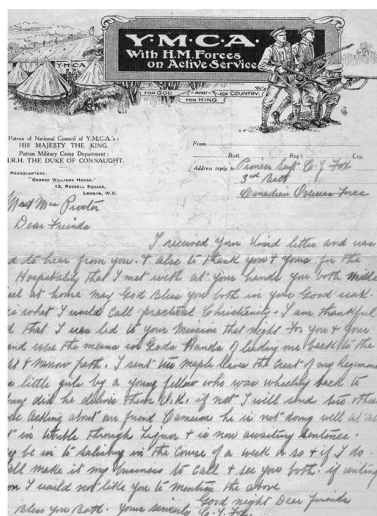 Y.M.C.A.
With H.M. Forces
on Active Service
Y.M.C.A
FOR GOD AND FOR COUNTRY.
FOR KING
Patron of National Council of Y.M.C.A.'s:
HIS MAJESTY THE KING.
Patron Military Camp Department:
H.R.H. THE DUKE OF CONNAUGHT.
HEADQUARTERS:
"GEORGE WILLIAMS HOUSE,"
13, RUSSELL SQUARE,
LONDON, W.C.
From
Batt. Reg't. Coy.
Address reply to Pioneer Sergt C. J. Fox
3rd Batt
Canadian Overseas Force
Mrs
Dear Friends
I received your kind letter and was
d to hear from you. & also to thank you & yours for the
Hospitality that I met with at your hands you both
at home may God Bless you both in your Good work.
is what I would call practical Christianity. I am thankful
d that I was led to your Mission that night for you & your
were the means in Gods Hands of leading me back to the
& narrow path. I sent two maple leaves the Crest of my Regiment
little girls by a young fellow who was wheeling back to
did he deliver them O.K. if not I will send two others
Asking about our friend Cameron he is not doing well at all
in trouble through Liquor & is now awaiting Sentence.
be in to Salisbury in the Course of a week or so & if I do
make it my business to Call & see you both. if writing
I would not like you to mention the above
Good night Dear friends
Bless you Both. Yours sincerely C. J. Fox.